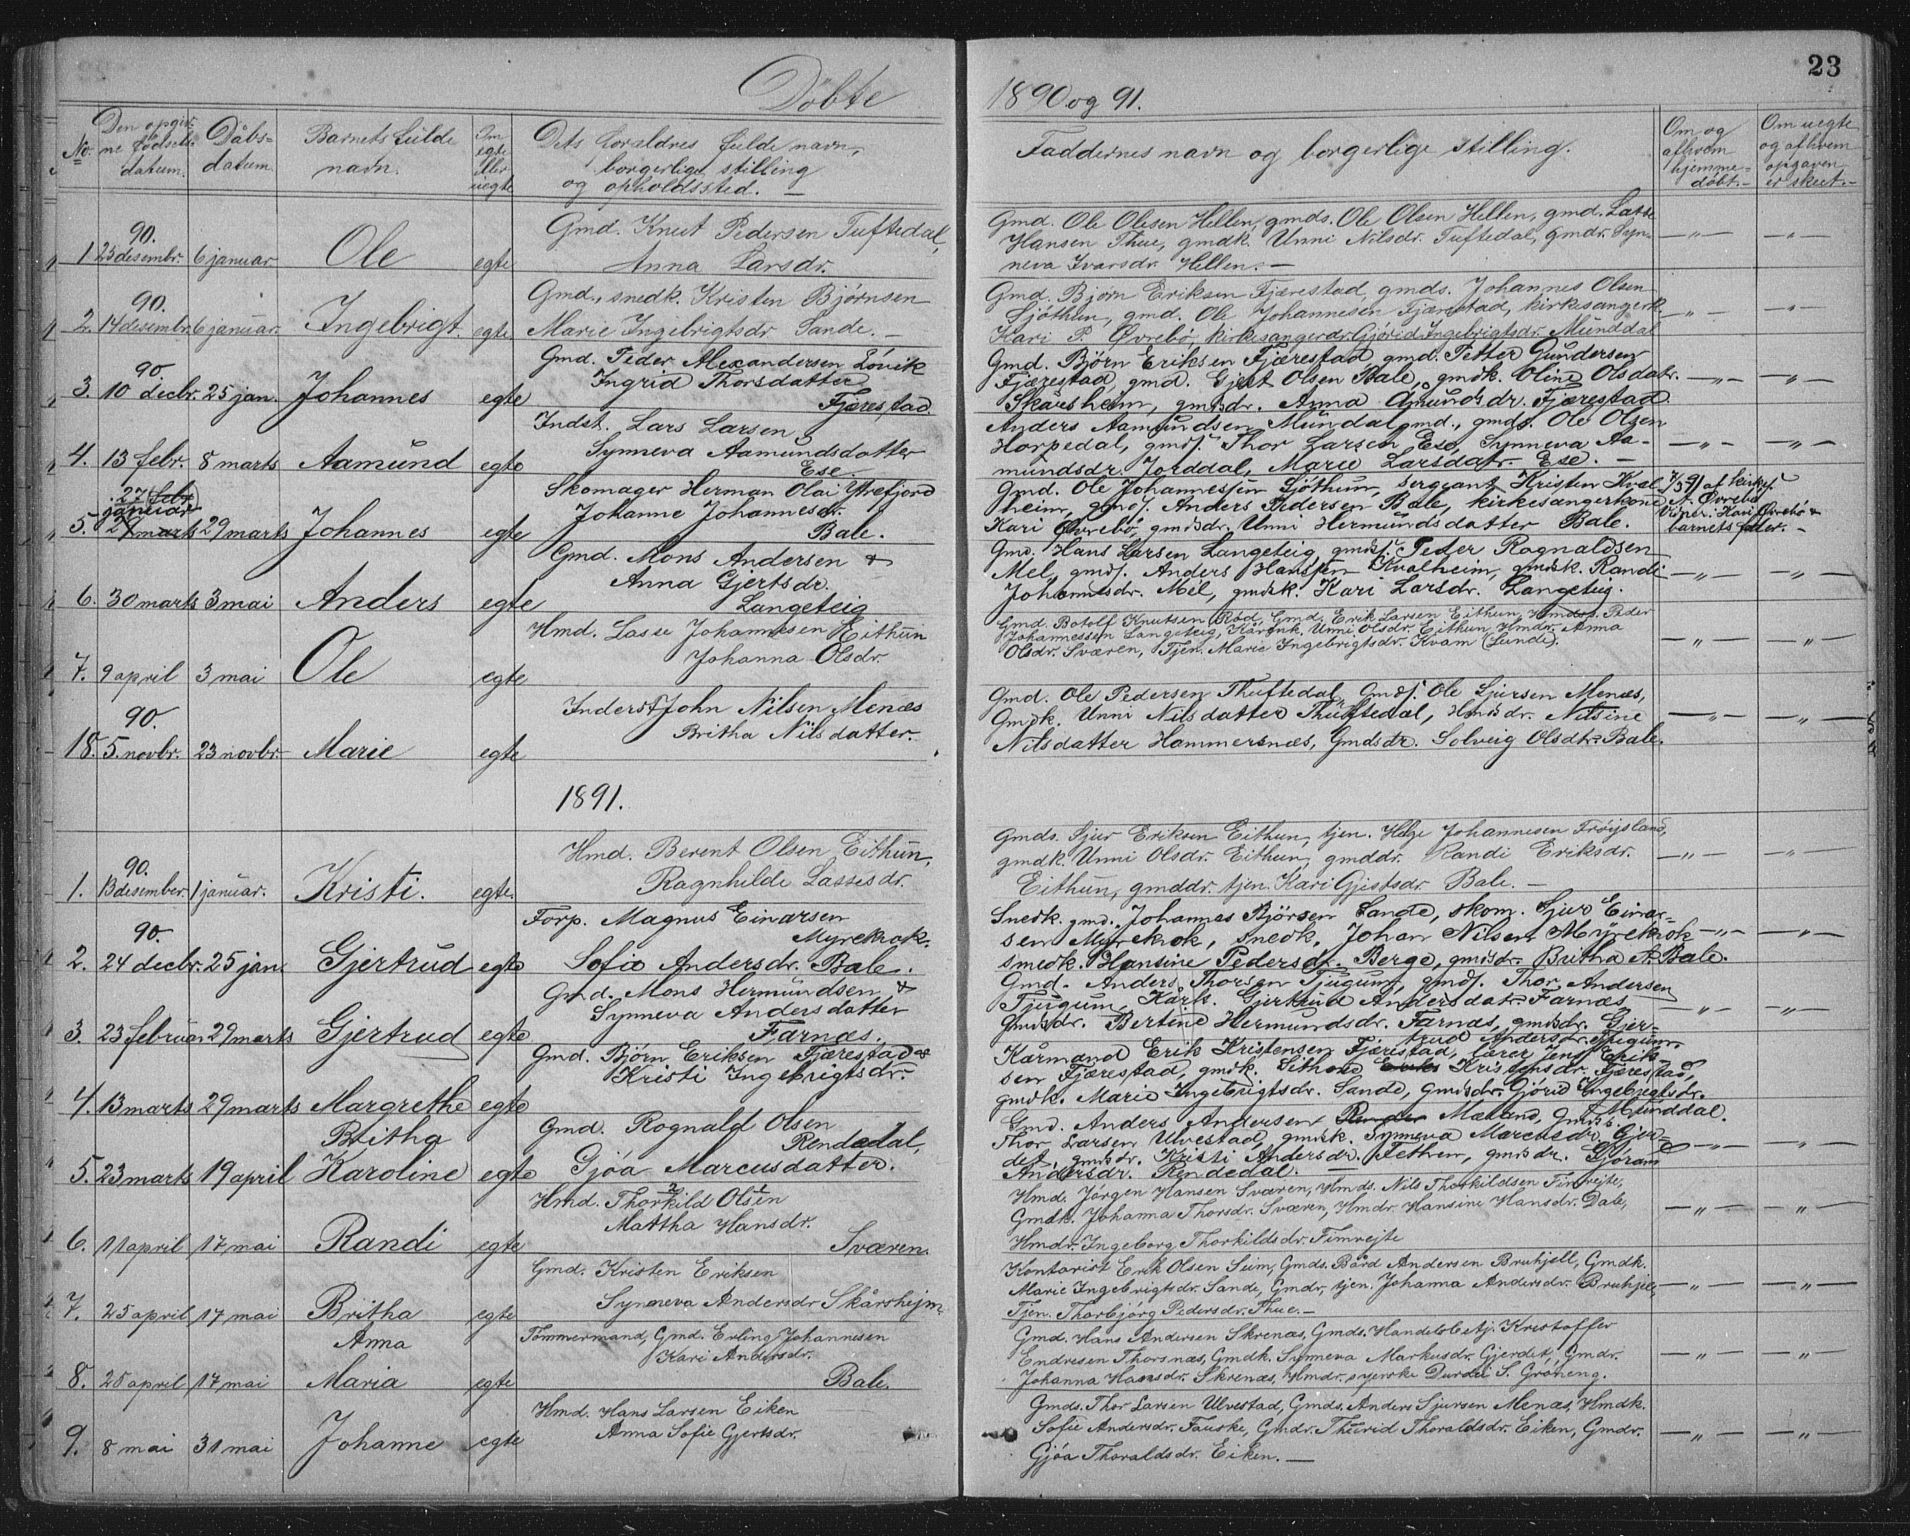 Döbte
1890 og 91.
23
No.
Den opgiv-
ne födsels-
datum.
Dåbs-
datum.
Barnets fulde
navn.
Om
egte
eller
uegte
Dets foraldres fulde navn,
borgerlige stilling
og opholdssted. —
Faddernes navn og borgerlige stilling.
Om og
af hvem
hjemme-
döbt. —
Om uegte
og af hvem
opgaven
er skeet. —
90.
1 25 desembr. 6 januar. Ole egte
Gmd. Knut Pedersen Tuftedal,
Anna Larsdr.
Gmd. Ole Olesen Hellen, gmds. Ole Olsen Hellen, gmd. Lasse
Hansen Thue, gmdk. Unni Nilsdr. Tuftedal, gmdr. Syn-
neva Ivarsdr. Hellen. —
— „ — — „ —
90.
2. 14 desembr. 6 januar. Ingebrigt. egte.
Gmd., snedk. Kristen Bjørnsen
Marie Ingebrigtsdr Sande. —
Gmd. Bjørn Eriksen Fjærestad, gmds. Johannes Olsen
Sjöthun, gmd. Ole Johannesen Fjærestad, kirkesangerk.
Kari P. Øvrebö, kirkesangerdr. Gjørid Ingebrigtsdr. Munddal
— „ — — „ —
90.
3. 10 decbr. 25 jan. Johannes egte
Gmd. Peder Alexandersen Lövik
Ingrid Thorsdatter
Fjærestad
Gmd. Björn Eriksen Fjærestad gmd. Petter Gundersen
Fjærestad, gmd. Gjert Olsen Bale, gmdk. Oline Olsdatr.
Skåresheim, gmdsdr. Anna Amundsdr. Fjærestad.
— „ — — „ —
4. 13 febr. 8 marts Aamund egte
Indst. Lars Larsen
Synneva Aamundsdatter
Ese.
Anders Aamundsen Mundal gmd., gmds. Ole Olsen
Horpedal, gmds. Thor Larsen Ese, Synneva Aa-
mundsdr. Jorddal, Marie Larsdatr. Ese. —
— „ — — „ —
27 febr
januar
5. 27 marts 29 marts Johannes egte
Skomager Herman Olai Ytrefjord
Johanne Johannesdr.
Bale.
Gmd. Ole Johannessen Sjöthun, sergeant Kristen Kval-
heim, gmds. Anders Pedersen Bale, kirkesangerkone
Kari Øvrebö, gmdsdr. Unni Hermundsdatter Bale.
af kirkes.
A. Øvrebö
Kari Øvrebö &
barnets fader. —
6. 30 marts 3 mai Anders egte
Gmd. Mons Andersen &
Anna Gjertsdr.
Langeteig
Gmd. Hans Larsen Langeteig, gmds. Peder Ragnaldsen
Mel, gmds. Anders Hanssen Kvalheim, gmdsk. Randi
Johannesdr. Mel, gmdsk. Kari Larsdr. Langeteig.
— „ — — „ —
7. 9 april 3 mai Ole egte
Hmd. Lasse Johannesen Eithun
Johanna Olsdr.
Gmd. Botolf Knutsen Röd, Gmd. Erik Larsen Eithun, Hmds. Peder
Johannessen Langeteig, Kårmk. Unni Olsdr. Eithun, Hmdr. Anna
Olsdr. Sværen, Tjen. Marie Ingebrigtsdr. Kvam (Lunde).
„ — „ —
90.
18. 5. novbr. 23 novbr. Marie egte
Inderst John Nilsen Menæs
Britha Nilsdatter.
Gmd. Ole Pedersen Thuftedal, Gmds. Ole Sjursen Menæs,
Gmdk. Unni Nilsdatter Thuftedal, Hmdsdr. Nilsine
Nilsdatter Hammersnæs, Gmdsdr. Solveig Olsdtr. Bale.
— „ — — „ —
1891.
90.
1. 13 desember. 1 januar. Kristi. egte.
Hmd. Berent Olsen Eithun,
Ragnhilde Lassesdr.
Gmds. Sjur Eriksen Eithun, tjen. Helge Johannesen Fröisland,
gmdk. Unni Olsdr. Eithun, gmddr. Randi Eriksdr.
Eithun, gmddr. tjen. Kari Gjertsdr. Bale. —
— „ — — „ —
90.
2. 24 decbr. 25 jan. Gjertrud egte
Forp. Magnus Einarsen
Myrekrok.
Sofia Andersdr. Bale.
Snedk. gmd. Johannes Bjørsen Sande, skom. Sjur Einar-
sen Myrekrok, snedk. Johan Nilsen Myrekrok
smedk. Hansine Pedersdr. Berge, gmdsdr. Britha A. Bale.
— „ — — „ —
3. 23 februar 29 marts Gjertrud egte
Gmd. Mons Hermundsen &
Synneva Andersdatter
Farnæs.
Gmd. Anders Thorsen Tjugum, gmds. Thor Andersen
Tjugum, Kårk. Gjertrud Andersdatr. Farnæs
Gmdsdr. Bertine Hermundsdr. Farnæs, gmdsdr. Gjer-
trud Andersdr. Tjugum.
— „ — — „ —
4. 13 marts 29 marts Margrethe egte
Gmd. Bjørn Eriksen Fjærestad &
Kristi Ingebrigtsdr.
Kårmand Erik Kristensen Fjærestad, lærer Jens Erik-
sen Fjærestad, gmdk. Sithone Kristensdr. Fjærestad,
gmdk. Marie Ingebrigtsdr. Sande, Gmdsdr. Gjørid Ingebrigtsdr.
Munddal.
— „ — — „ —
Britha
5. 23 marts 19 april Karoline egte
Gmd. Rognald Olsen
Rendedal,
Gjöa Marcusdatter.
Gmd. Anders Andersen Mæland, Gmds.
Thor Larsen Ulvestad, gmdsk. Synneva Marcusdr. Gjer-
det, gmdsdr. Kristi Andersdr. Fethun, gmdsdr. Gjörond
Andersdr. Rendedal. —
— „ — — „ —
6. 11 april 17 mai Randi egte
Hmd. Thorkild Olsen
Mattha Hansdr.
Sværen.
Hmd. Jörgen Hansen Sværen, Hmds. Nils Thorkildsen Fimreite,
Gmdk. Johanna Thorsdr. Sværen, Hmdr. Hansine Hansdr. Dale,
Hmdr. Ingeborg Thorkildsdr. Fimreite
— „ — — „ —
7. 25 april 17 mai Britha egte
Gmd. Kristen Eriksen
Synneva Andersdr. Skårshejm
Kontorist Erik Olsen Sum, Gmds. Bård Andersen Bruhjell, Gmdk.
Marie Ingebrigtsdr. Sande, Gmdr, tjen. Johanna Andersdr. Bruhjell,
Tjen. Thorbjörg Pedersdr. Thue. —
— „ — — „ —
Anna
8. 25 april 17 mai Maria egte
Tömmermand, Gmd. Erling Johannesen
Kari Andersdr.
Bale.
Gmd. Hans Andersen Skrenæs, Gmds. Handelsbetj. Kristoffer
Endresen Thorsnæs, Gmdk. Synneva Markusdr. Gjerdet, Gmdr.
Johanna Hansdr. Skrenæs, Hmdr. syerske Durdei S. Gröneng.
— „ — — „ —
9. 8 mai 31 mai Johanne egte
Hmd. Hans Larsen Eiken
Anna Sofie Gjertsdr.
Gmds. Thor Larsen Ulvestad, Gmds. Anders Sjursen Menæs, Hmdk.
Sofie Andersdr. Fauske, Gmdr. Thurid Thoraldsdr. Eiken, Gmdr.
Gjöa Thoraldsdr. Eiken. —
— „ — — „ —